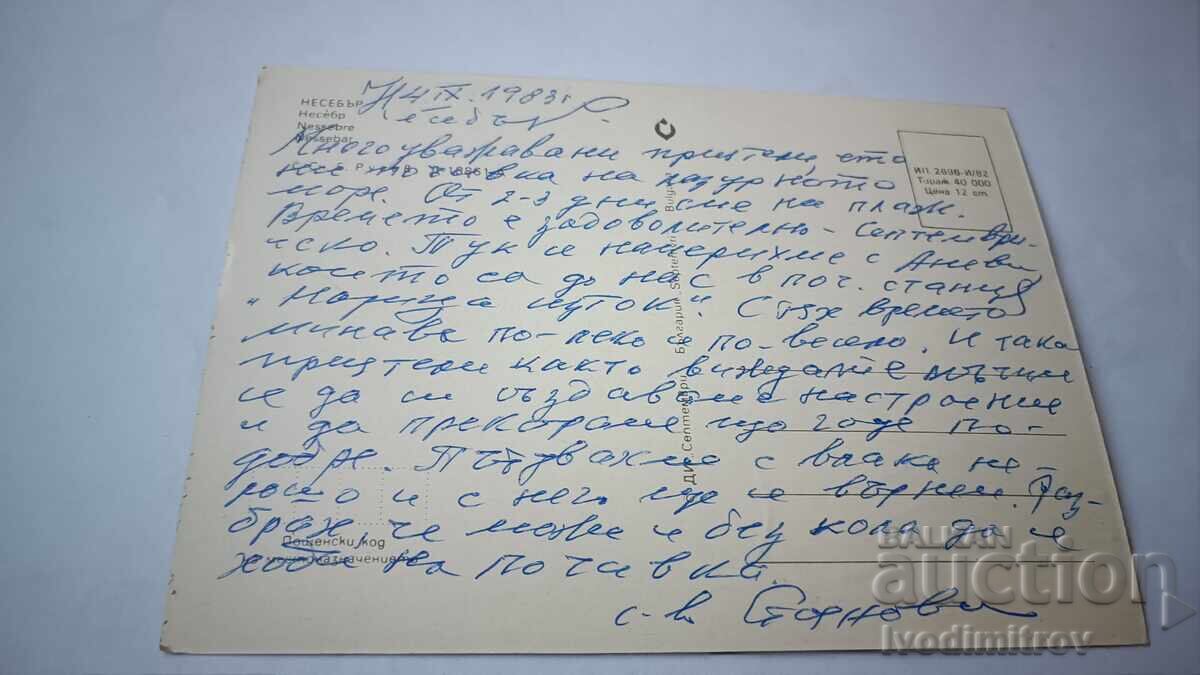 НЕСЕБЪР
Несебр
Nessèbre
Nessebar
14 IX. 1983 г
Несебър
Много уважавани приятели, ето
ни на почивка на лазурното
море. От 2-3 дни сме на плаж.
Времето е задоволително - Септемврий-
ско. Тук се намерихме с Аневи,
които са до нас в поч. станция
"
С тях времето
минава по-леко и по-весело. И така
приятели както виждате мъчим
се да си създаваме настроение
и да прекараме що годе по-
добре. Пътувахме с влака не-
лошо и с него ще се върнем. Раз-
брах, че може и без кола да се
ходи на почивка.
с-во Стоянови
ИП. 2696-И/82
Тираж 40 000
Цена 12 ст.
ДИ „Септември"
България. Septemvri
Пощенски код
местоназначението
BALKAN
auction
Ivodimitrov